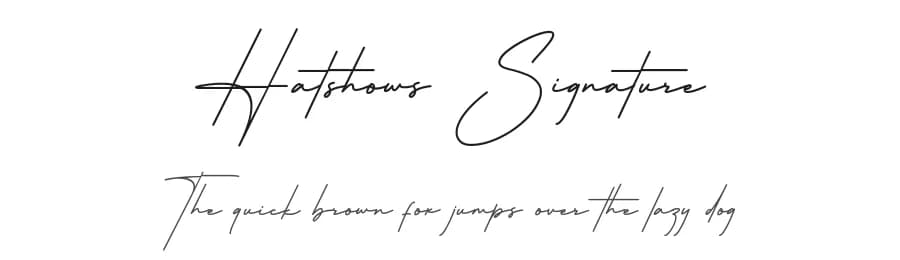 Hatshows Signature
The quick brown fox jumps over the lazy dog